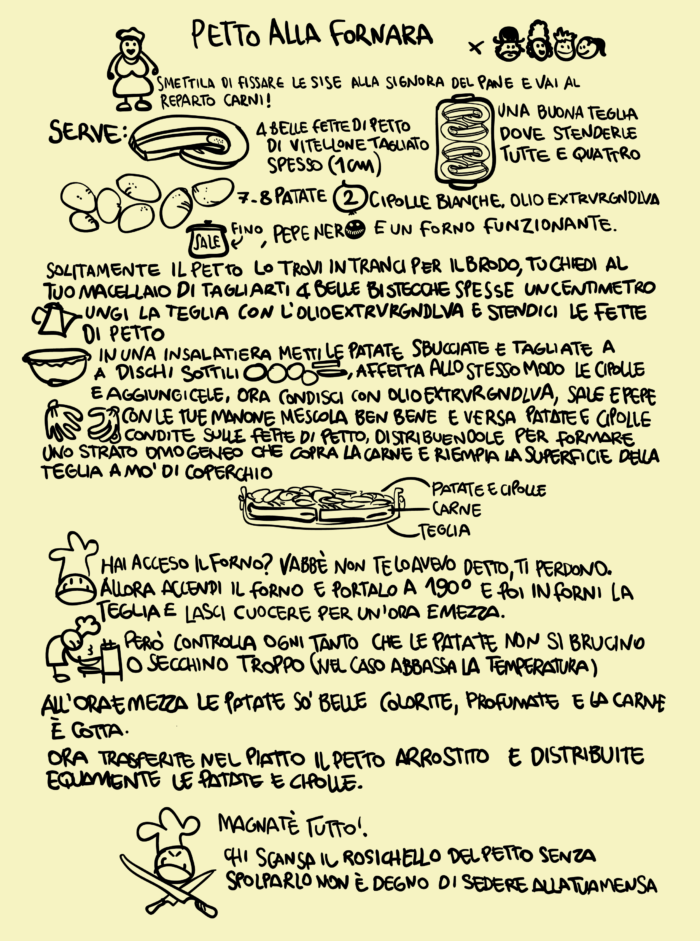 PETTO ALLA FORNARA
x
SMETTILA DI FISSARE LE SISE ALLA SIGNORA DEL PANE E VAI AL
REPARTO CARNI!
SERVE:
4 BELLE FETTE DI PETTO
DI VITELLONE TAGLIATO
SPESSO (1 CM)
UNA BUONA TEGLIA
DOVE STENDERLE
TUTTE E QUATTRO
7-8 PATATE 2 CIPOLLE BIANCHE, OLIO EXTRVRGNDLVA
SALE FINO, PEPE NERO E UN FORNO FUNZIONANTE.
SOLITAMENTE IL PETTO LO TROVI IN TRANCI PER IL BRODO, TU CHIEDI AL
TUO MACELLAIO DI TAGLIARTI 4 BELLE BISTECCHE SPESSE UN CENTIMETRO
UNGI LA TEGLIA CON L'OLIOEXTRVRGNDLVA E STENDICI LE FETTE
DI PETTO
IN UNA INSALATIERA METTI LE PATATE SBUCCIATE E TAGLIATE A
A DISCHI SOTTILI, AFFETTA ALLO STESSO MODO LE CIPOLLE
E AGGIUNGICELE, ORA CONDISCI CON OLIO EXTRVRGNDLVA, SALE E PEPE
CON LE TUE MANONE MESCOLA BEN BENE E VERSA PATATE E CIPOLLE
CONDITE SULLE FETTE DI PETTO, DISTRIBUENDOLE PER FORMARE
UNO STRATO OMOGENEO CHE COPRA LA CARNE E RIEMPIA LA SUPERFICIE DELLA
TEGLIA A MO' DI COPERCHIO
PATATE E CIPOLLE
CARNE
TEGLIA
HAI ACCESO IL FORNO? VABBÈ NON TE LO AVEVO DETTO, TI PERDONO.
ALLORA ACCENDI IL FORNO E PORTALO A 190° E POI INFORNI LA
TEGLIA E LASCI CUOCERE PER UN'ORA E MEZZA.
PERÒ CONTROLLA OGNI TANTO CHE LE PATATE NON SI BRUCINO
O SECCHINO TROPPO (NEL CASO ABBASSA LA TEMPERATURA)
ALL'ORA E MEZZA LE PATATE SO' BELLE COLORITE, PROFUMATE E LA CARNE
È COTTA.
ORA TRASFERITE NEL PIATTO IL PETTO ARROSTITO E DISTRIBUITE
EQUAMENTE LE PATATE E CIPOLLE.
MAGNATÈ TUTTO!
CHI SCANSA IL ROSICHELLO DEL PETTO SENZA
SPOLPARLO NON È DEGNO DI SEDERE ALLA TUA MENSA